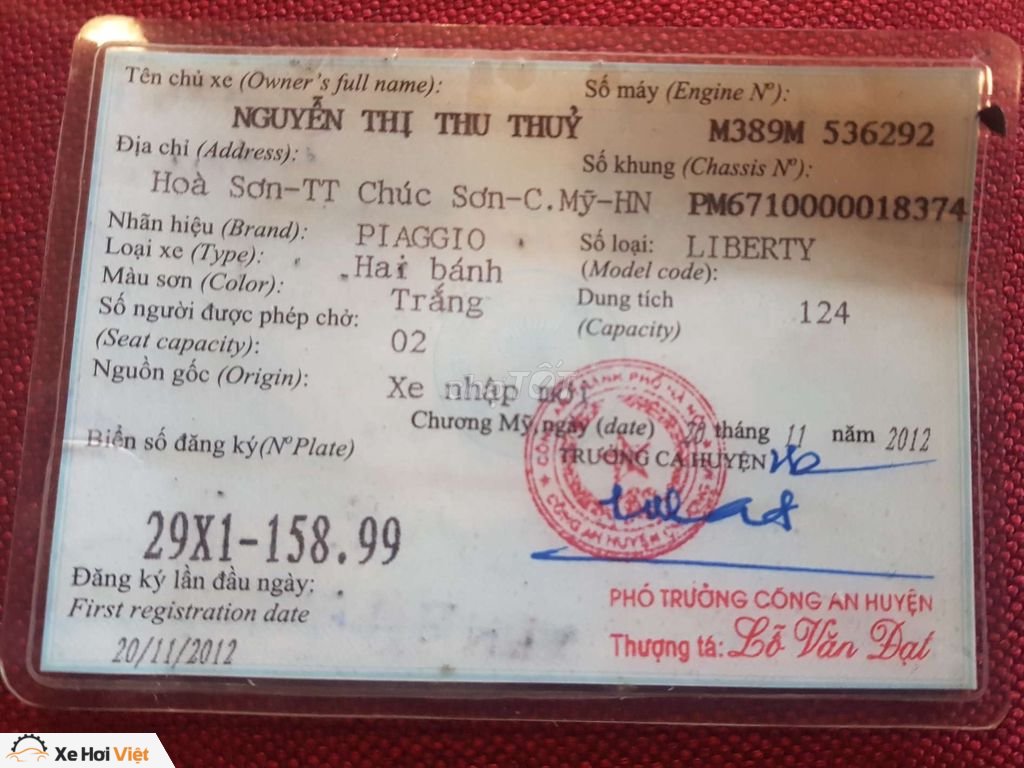 Tên chủ xe (Owner's full name):
NGUYỄN THỊ THU THUỶ
Số máy (Engine Nº):
M389M 536292
Địa chỉ (Address):
Hoà Sơn-TT Chúc Sơn-C.Mỹ-HN
Số khung (Chassis Nº):
PM6710000018374
Nhãn hiệu (Brand):
PIAGGIO
Số loại:
LIBERTY
(Model code):
Loại xe (Type):
Hai bánh
Màu sơn (Color):
Trắng
Dung tích
124
(Capacity)
Số người được phép chở:
02
(Seat capacity):
Nguồn gốc (Origin):
Xe nhập mới
nhaTốt
Chương Mỹ, ngày (date) 20 tháng 11 năm 2012
TRƯỞNG CA HUYỆN
Biển số đăng ký(Nº Plate)
29X1-158.99
CÔNG AN HUYỆN
Đăng ký lần đầu ngày:
First registration date
20/11/2012
PHÓ TRƯỞNG CÔNG AN HUYỆN
Thượng tá: Lỗ Văn Đạt
Xe Hơi Việt